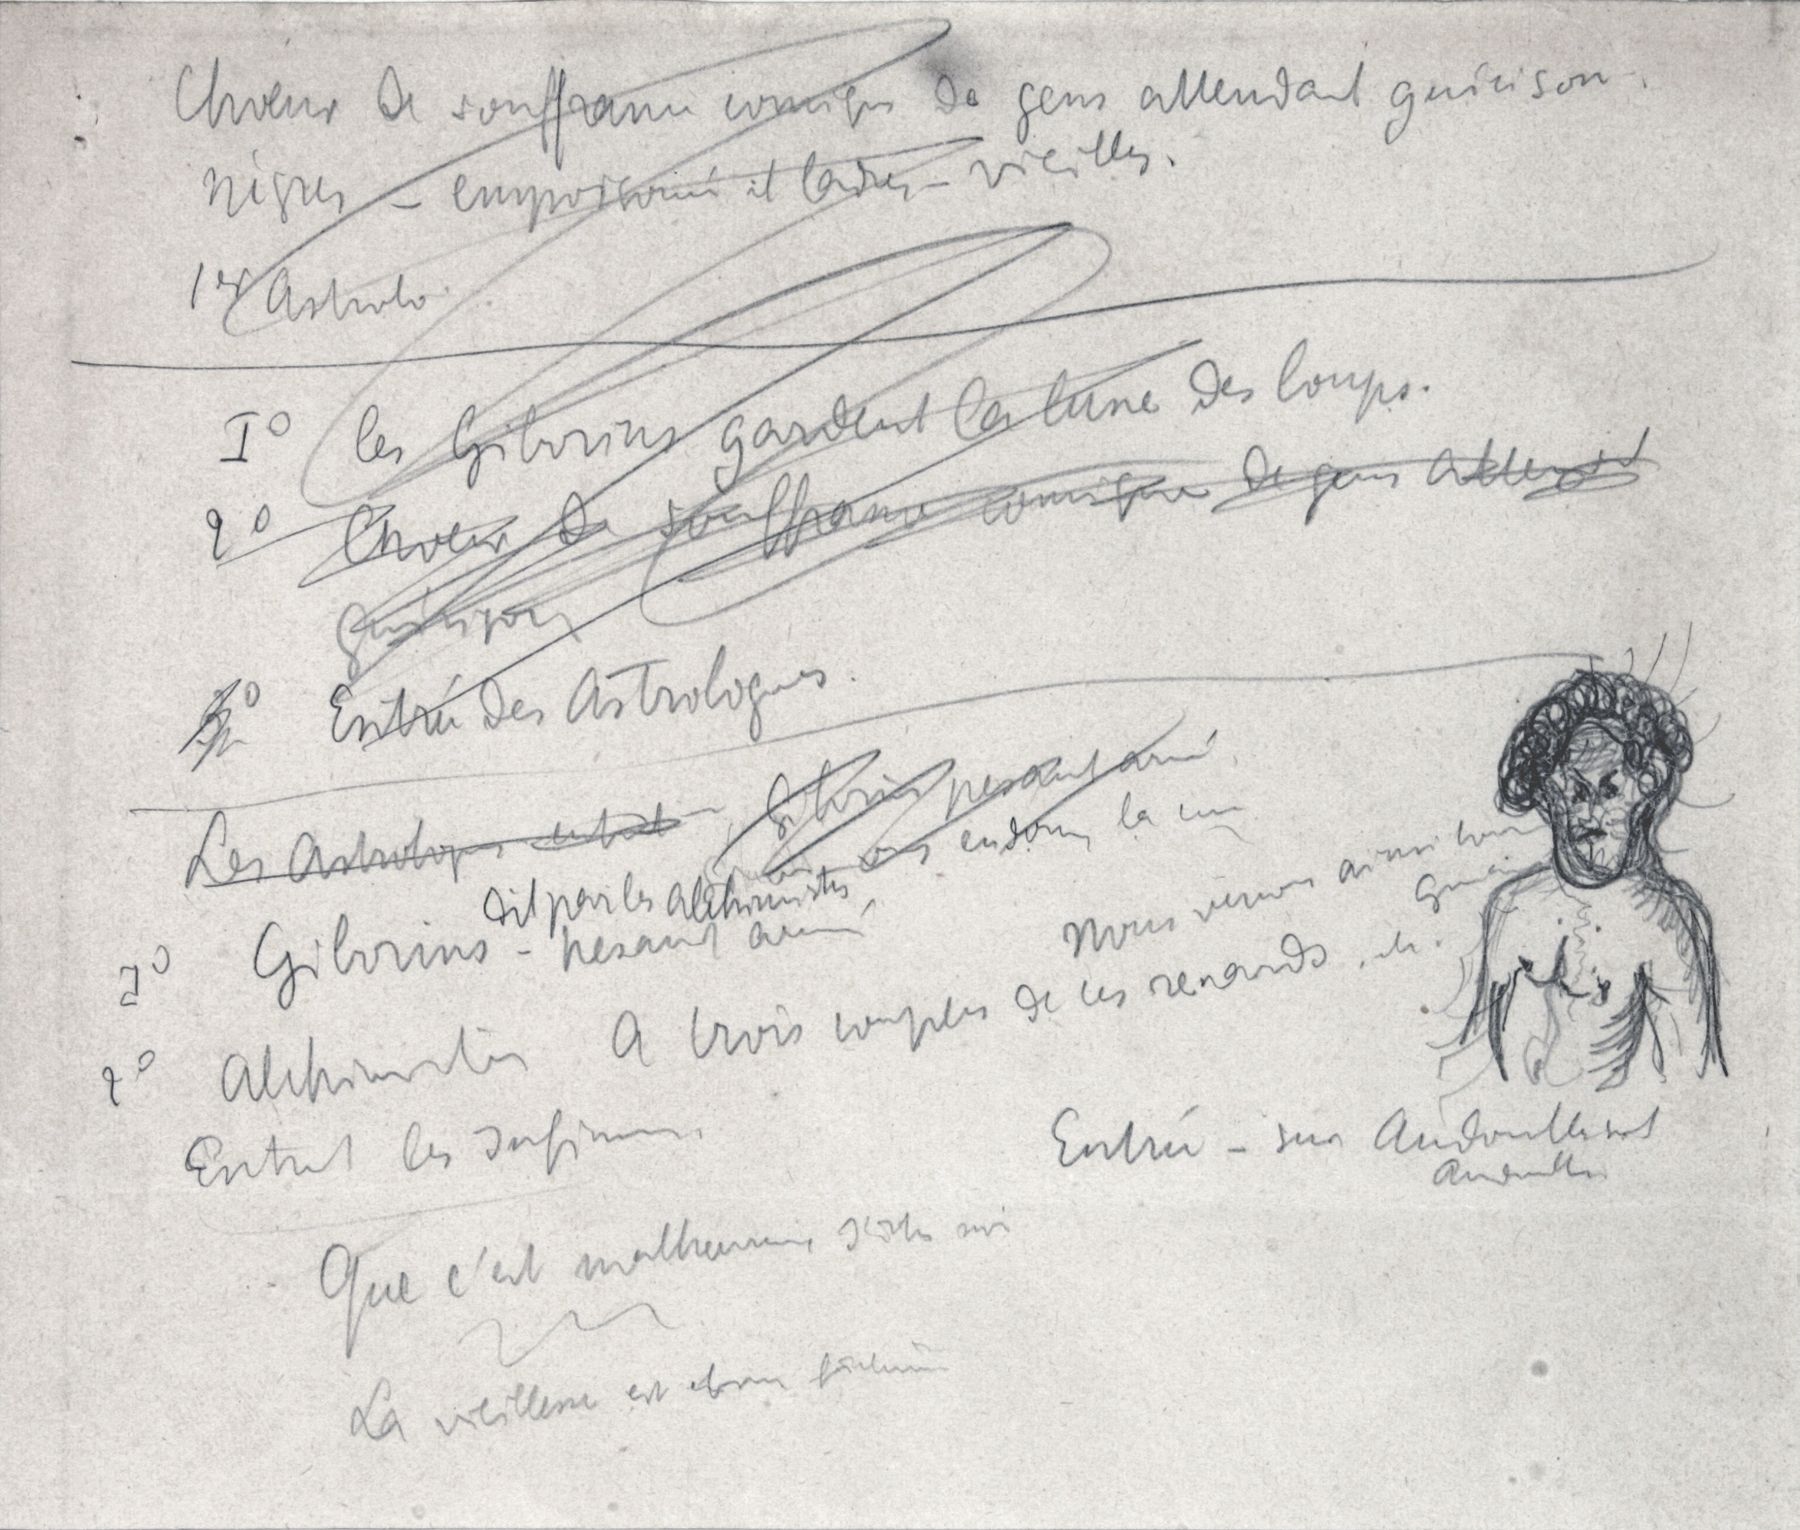 Choeur de souffrance comique de gens attendant guérison.
nègres - empoisonné et ladres - vieilles.
1er Astrolo
I° les Giborins gardent la lune des loups.
2° Choeur de souffrance comique de gens attend
guérison
Entrée des Astrologues.
Les Astrologues Giborins pesant armé
endorm la
dit par les alchimistes
I° Giborins - pesant armé
Nous venons ainsi
2° Alchimistes A trois couples de ces renards, etc.
Entrent les Infirmes.
Entrée - sur
Que c'est malheureux d'être
La vieillesse est